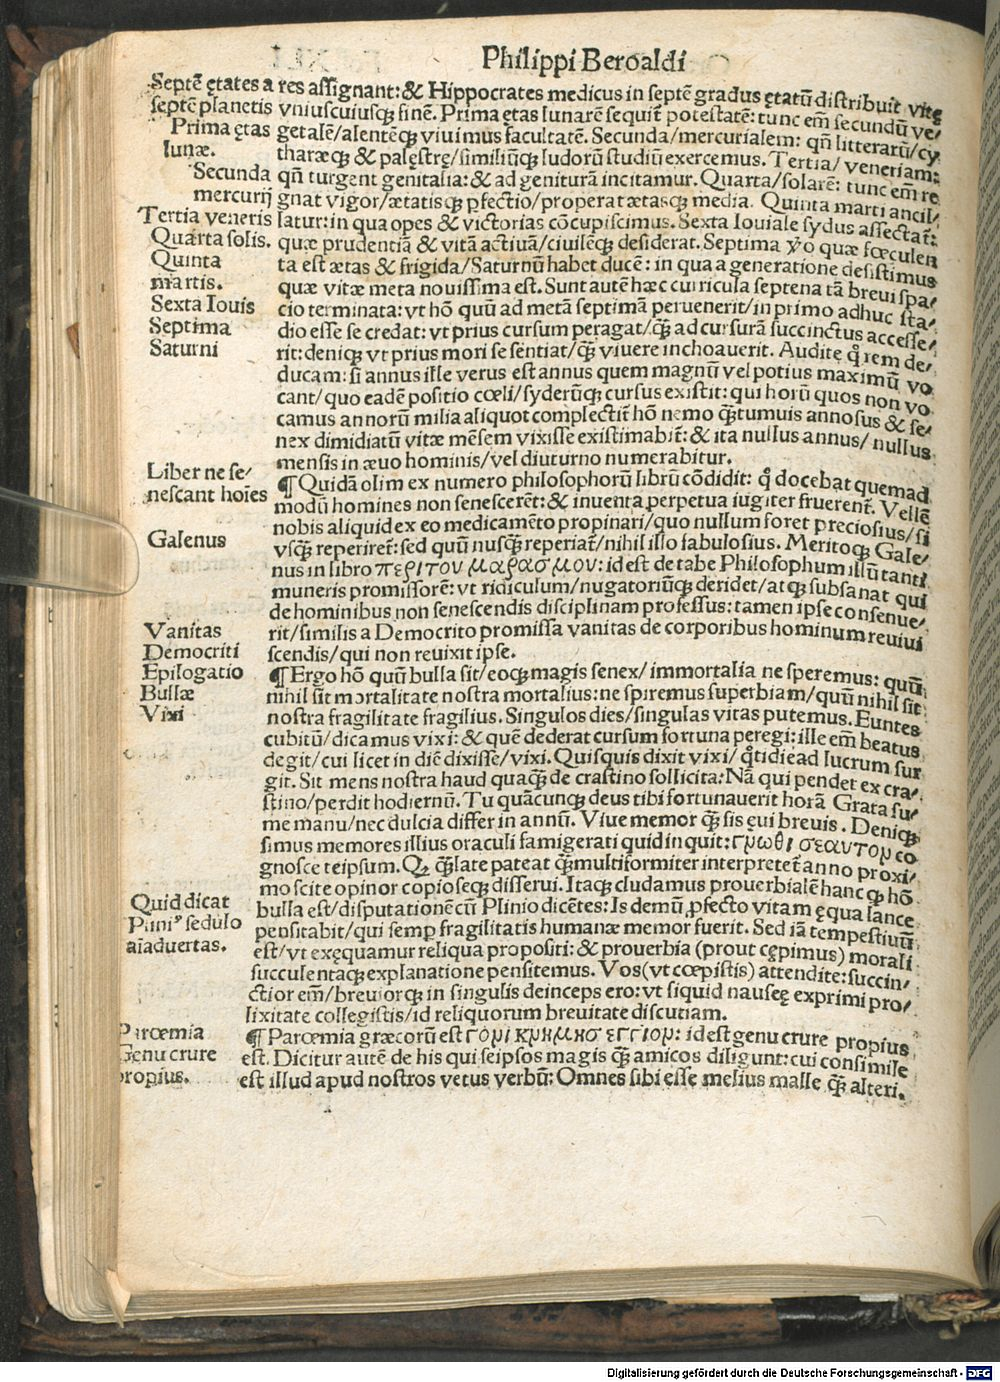 Philippi Beroaldi
Septē ętates a
septē planetis
Prima ętas
lunæ.
Secunda
mercurij
Tertia veneris
Quarta solis.
Quinta
martis.
Sexta Iouis
Septima
Saturni
res assignant: & Hippocrates medicus in septē gradus ętatū distribuit vitę
vniuscuiusqꝫ finē. Prima ętas lunarē sequit᷑ potestatē: tunc em̄ secundū ve/
getalē/alentēqꝫ viuimus facultatē. Secunda/mercurialem: qn̄ litterarū/cy
tharæqꝫ & palęstrę/similiūqꝫ ludorū studiū exercemus. Tertia/ veneriam:
qn̄ turgent genitalia: & ad geniturā incitamur. Quarta/solarē: tunc em̄ re
gnat vigor/ætatisqꝫ ꝑfectio/properat ætasqꝫ media. Quinta marti ancil/
latur: in qua opes & victorias cōcupiscimus. Sexta Iouiale sydus affectat᷑:
quæ prudentiā & vitā actiuā/ciuilēqꝫ desiderat. Septima ꝟo quæ fœculen
ta est ætas & frigida/Saturnū habet ducē: in qua a generatione desistimus
quæ vitæ meta nouissima est. Sunt autē hæc curricula septena tā breui spa/
cio terminata: vt hō quū ad metā septimā peruenerit/in primo adhuc sta/
dio esse se credat: vt prius cursum peragat/qꝫ̄ ad cursurā succinctus accesse/
rit: deniqꝫ vt prius mori se sentiat/qꝫ̄ viuere inchoauerit. Audite q̊ rem de/
ducam: si annus ille verus est annus quem magnū vel potius maximū vo
cant/quo eadē positio cœli/syderūqꝫ cursus existit: qui horū quos non vo
camus annorū milia aliquot complectit᷑ hō nemo qꝫ̄tumuis annosus & se/
nex dimidiatū vitæ mēsem vixisse existimabit᷑: & ita nullus annus/ nullus
mensis in æuo hominis/vel diuturno numerabitur.
Liber ne se/
nescant hoīes
Galenus
Vanitas
Democriti
¶ Quidā olim ex numero philosophorū librū cōdidit: q̊ docebat quemad
modū homines non senescerēt: & inuenta perpetua iugiter fruerent᷑. Vellē
nobis aliquid ex eo medicamēto propinari/quo nullum foret preciosius/si
vsqꝫ̄ reperiret᷑: sed quū nusqꝫ̄ reperiat᷑/nihil illo fabulosius. Meritoqꝫ Gale/
nus in libro περι του μαρασμου: id est de tabe Philosophum illū tanti
muneris promissorē: vt ridiculum/nugatoriūqꝫ deridet/atqꝫ subsanat qui
de hominibus non senescendis disciplinam professus: tamen ipse consenue/
rit/similis a Democrito promissa vanitas de corporibus hominum reuiui
scendis/qui non reuixit ipse.
Epilogatio
Bullæ
Vixi
¶ Ergo hō quū bulla sit/eoqꝫ magis senex/ immortalia ne speremus: quū
nihil sit mortalitate nostra mortalius: ne spiremus superbiam/quū nihil sit
nostra fragilitate fragilius. Singulos dies/singulas vitas putemus. Euntes
cubitū/dicamus vixi: & quē dederat cursum fortuna peregi: ille em̄ beatus
degit/cui licet in diē dixisse/vixi. Quisquis dixit vixi/ q̊tidie ad lucrum sur
git. Sit mens nostra haud quaqꝫ̄ de crastino sollicita: Nā qui pendet ex cra/
stino/perdit hodiernū. Tu quācunqꝫ deus tibi fortunauerit horā Grata su/
me manu/nec dulcia differ in annū. Viue memor qꝫ̄ sis eui breuis. Deniqꝫ
simus memores illius oraculi famigerati quid inquit: γνωθι σεαυτον co
gnosce teipsum. Qꝫ qꝫ̄ late pateat qꝫ̄ multiformiter interpretet᷑ anno proxi/
mo scite opinor copioseqꝫ disserui. Itaqꝫ cludamus prouerbialē hanc qꝫ hō
bulla est/disputationē cū Plinio dicētes: Is demū ꝓfecto vitam ęqua lance
pensitabit/qui semꝑ fragilitatis humanæ memor fuerit. Sed iā tempestiuū
est/vt exęquamur reliqua propositi: & prouerbia (prout cępimus) morali
succulentaqꝫ explanatione pensitemus. Vos (vt cœpistis) attendite: succin/
ctior em̄/breuiorqꝫ in singulis deinceps ero: vt siquid nauseę exprimi pro/
lixitate collegistis/id reliquorum breuitate discutiam.
Quid dicat
Plini⁹ sedulo
aīaduertas.
Parœmia
Genu crure
propius.
¶ Parœmia græcorū est γονυ κνημησ εγγιον: id est genu crure propius
est. Dicitur autē de his qui seipsos magis qꝫ̄ amicos diligunt: cui consimile
est illud apud nostros vetus verbū: Omnes sibi esse melius malle qꝫ̄ alteri.
Digitalisierung gefördert durch die Deutsche Forschungsgemeinschaft - DFG